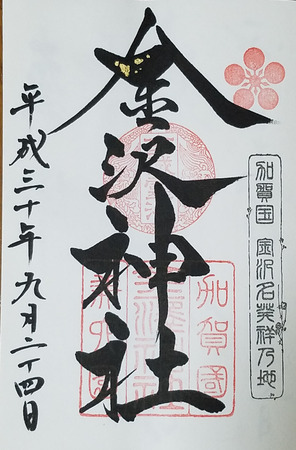 加賀国 金沢名発祥乃地
金沢神社
加賀國
平成三十年九月二十四日